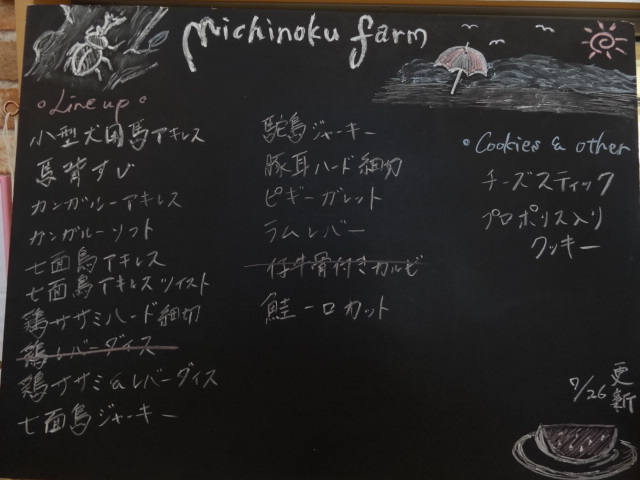 Michinoku farm
Line up
小型犬用馬アキレス
馬背すじ
カンガルーアキレス
カンガルーソフト
七面鳥アキレス
七面鳥アキレスツイスト
鶏ササミハード細切
鶏レバーダイス
鶏ササミ&レバーダイス
七面鳥ジャーキー
駝鳥ジャーキー
豚耳ハード細切
ピギーガレット
ラムレバー
仔牛骨付きカルビ
鮭一口カット
Cookies & other
チーズスティック
プロポリス入り
クッキー
7/26 更新